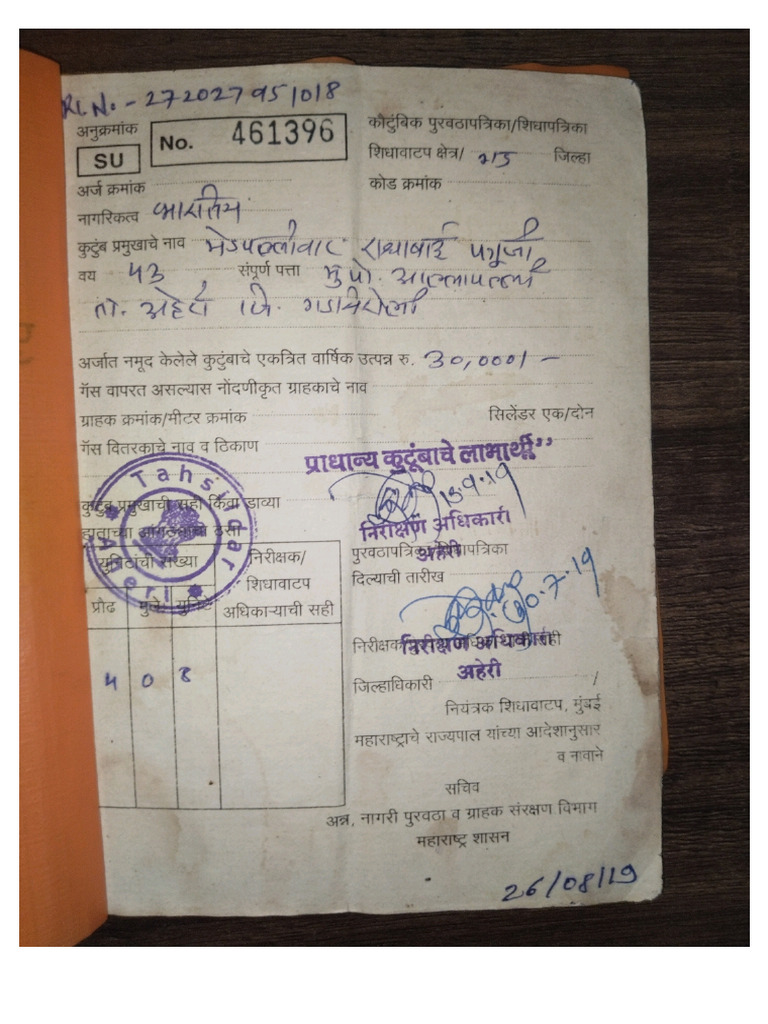 RC. No:- 272027951018
अनुक्रमांक
SU
No. 461396
कौटुंबिक पुरवठापत्रिका/शिधापत्रिका
शिधावाटप क्षेत्र/ जिल्हा
अर्ज क्रमांक
कोड क्रमांक
नागरिकत्व भारतिय
कुटुंब प्रमुखाचे नाव मेडपल्लीवार राधाबाई
वय ५३ संपूर्ण पत्ता मु पो. आल्लापल्ली
ता. अहेरी जि. गडचिरोली
अर्जात नमूद केलेले कुटुंबाचे एकत्रित वार्षिक उत्पन्न रु. 30,000/-
गॅस वापरत असल्यास नोंदणीकृत ग्राहकाचे नाव
ग्राहक क्रमांक/मीटर क्रमांक सिलेंडर एक/दोन
गॅस वितरकाचे नाव व ठिकाण
प्राधान्य कुटूंबाचे लाभार्थी”
Tahsildar
Aheri
कुटुंब प्रमुखाची सही किंवा डाव्या
हाताच्या आंगठ्याचा ठसा
निरीक्षण अधिकारी
अहेरी
युनिटांची संख्या
निरीक्षक/
शिधावाटप
अधिकाऱ्याची सही
प्रौढ मुले युनिट
4 0 8
पुरवठापत्रिका/शिधापत्रिका
दिल्याची तारीख
निरीक्षण अधिकारी
अहेरी
जिल्हाधिकारी /
नियंत्रक शिधावाटप, मुंबई
महाराष्ट्राचे राज्यपाल यांच्या आदेशानुसार
व नावाने
सचिव
अन्न, नागरी पुरवठा व ग्राहक संरक्षण विभाग
महाराष्ट्र शासन
26/08/19